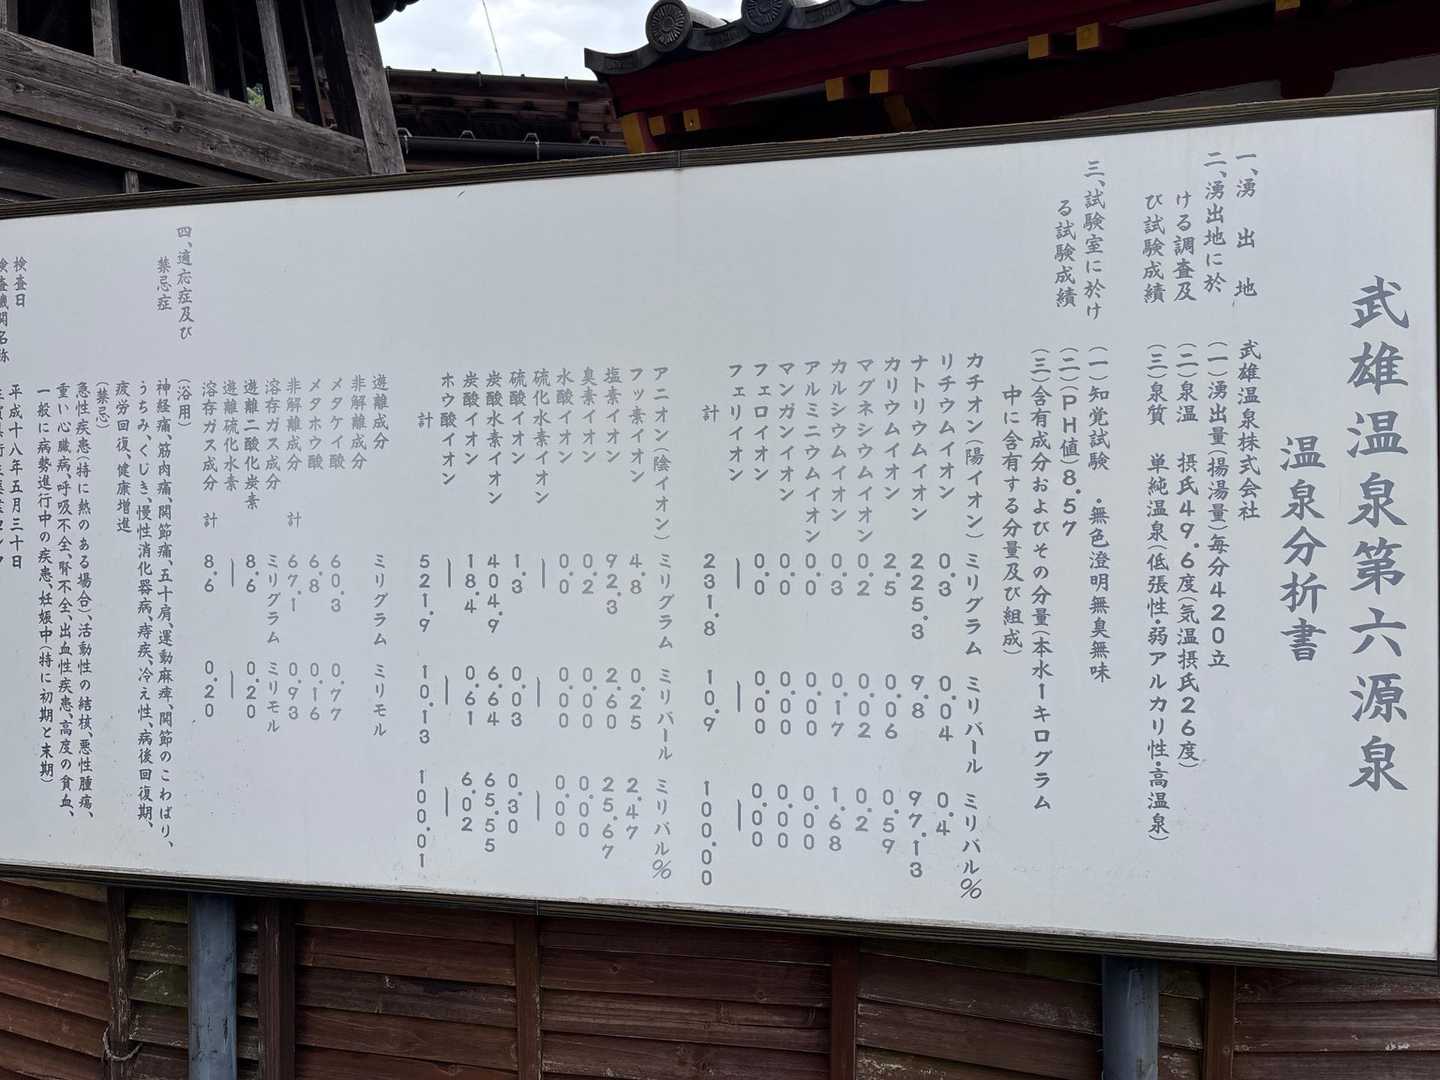 武雄温泉第六源泉
温泉分析書
一、湧出地
武雄温泉株式会社
二、湧出地に於
ける調査及
び試験成績
(一)湧出量(揚湯量)毎分420立
(二)泉温 摂氏49.6度(気温摂氏26度)
(三)泉質 単純温泉(低張性・弱アルカリ性・高温泉)
三、試験室に於け
る試験成績
(一)知覚試験・無色澄明無臭無味
(二)(PH値)8.57
(三)含有成分およびその分量(本水1キログラム
中に含有する分量及び組成)
カチオン(陽イオン) ミリグラム ミリバール ミリバル%
リチウムイオン 0.3 0.04 0.4
ナトリウムイオン 225.3 9.8 97.13
カリウムイオン 2.5 0.06 0.59
マグネシウムイオン 0.2 0.02 0.2
カルシウムイオン 0.3 0.17 1.68
アルミニウムイオン 0.0 0.00 0.00
マンガンイオン 0.0 0.00 0.00
フェロイオン 0.0 0.00 0.00
フェリイオン — — —
計 231.8 10.9 100.00
アニオン(陰イオン) ミリグラム ミリバール ミリバル%
フッ素イオン 4.8 0.25 2.47
塩素イオン 92.3 2.60 25.67
臭素イオン 0.2 0.00 0.00
水酸イオン 0.0 0.00 0.00
硫化水素イオン — — —
硫酸イオン 1.3 0.03 0.30
炭酸水素イオン 404.9 6.64 65.55
炭酸イオン 18.4 0.61 6.02
ホウ酸イオン — — —
計 521.9 10.13 100.01
遊離成分 ミリグラム ミリモル
非解離成分
メタケイ酸 60.3 0.77
メタホウ酸 6.8 0.16
非解離成分 計 67.1 0.93
溶存ガス成分 ミリグラム ミリモル
遊離二酸化炭素 8.6 0.20
遊離硫化水素 — —
溶存ガス成分 計 8.6 0.20
四、適応症及び
禁忌症
(浴用)
神経痛、筋肉痛、関節痛、五十肩、運動麻痺、関節のこわばり、
うちみ、くじき、慢性消化器病、痔疾、冷え性、病後回復期、
疲労回復、健康増進
(禁忌)
急性疾患(特に熱のある場合)、活動性の結核、悪性腫瘍、
重い心臓病、呼吸不全、腎不全、出血性疾患、高度の貧血、
一般に病勢進行中の疾患、妊娠中(特に初期と末期)
検査日 平成十八年五月三十日
検査機関名称